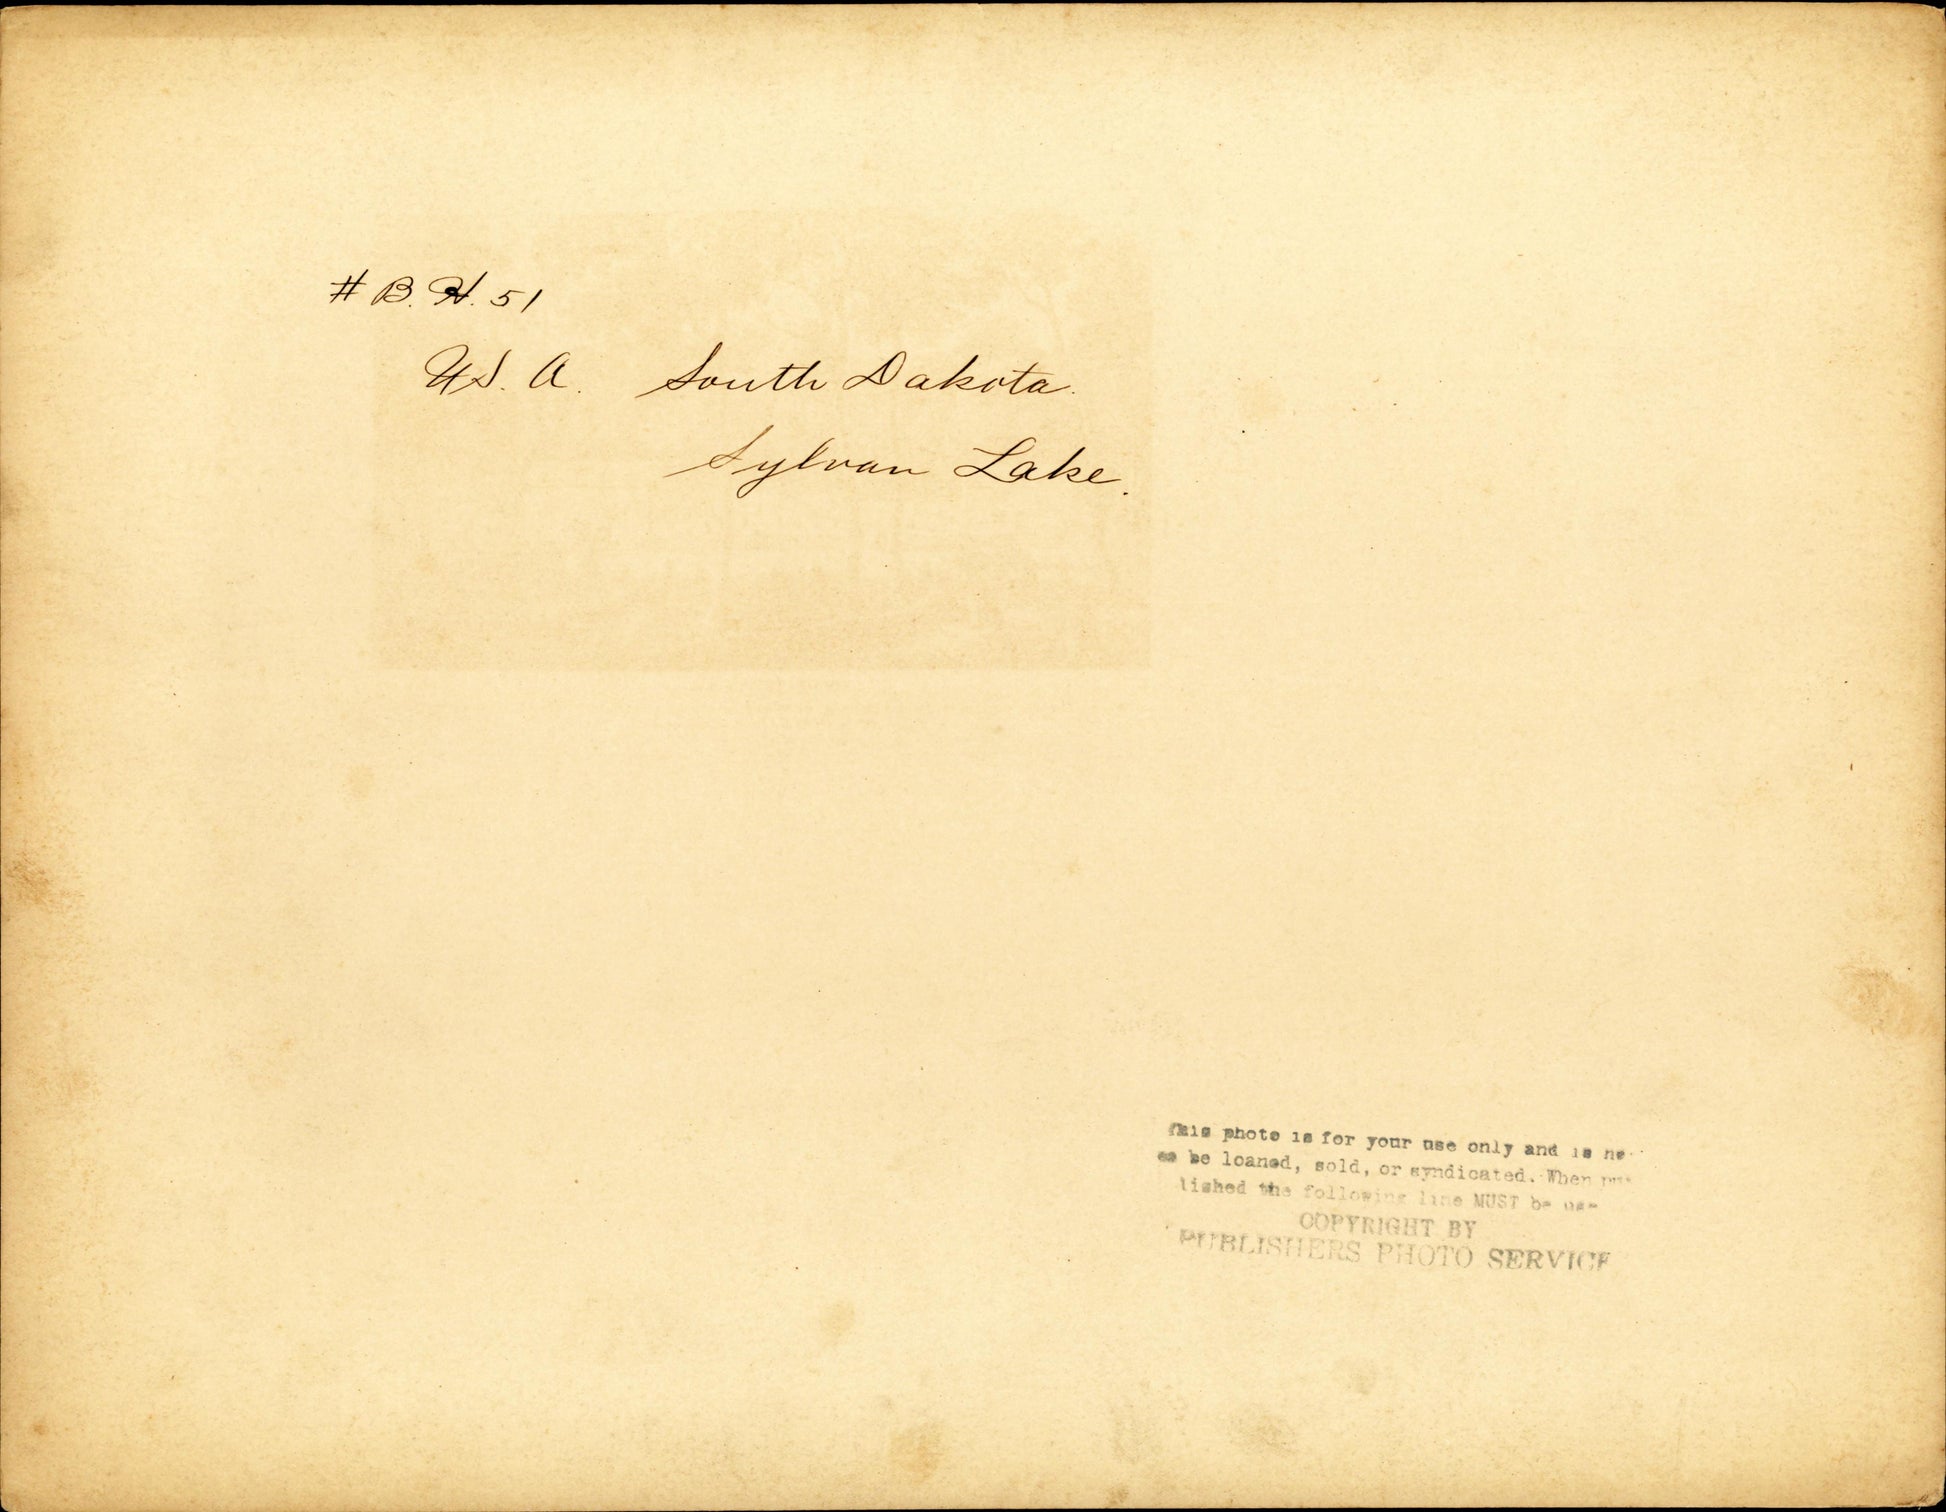 # B. H. 51
U.S. A. South Dakota.
Sylvan Lake.
This photo is for your use only and is
be loaned, sold, or syndicated. When
lished the following line MUST be
COPYRIGHT BY
PUBLISHERS PHOTO SERVICE